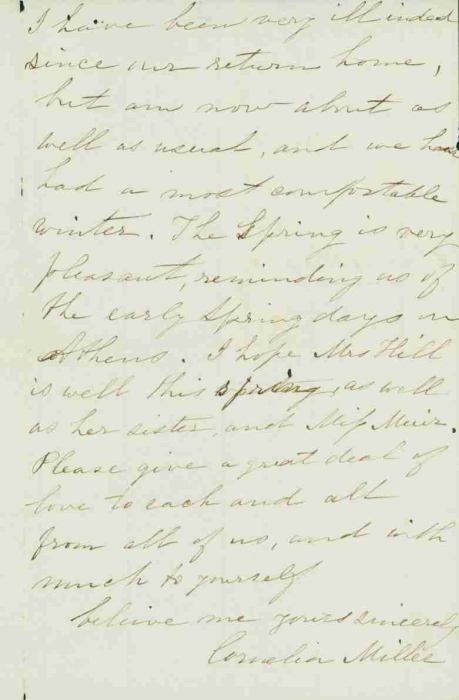 I have been very ill indeed
since our return home,
but am now about as
well as usual, and we have
had a most comfortable
winter. The Spring is very
pleasant, reminding us of
the early Spring days in
Athens. I hope Mrs Hill
is well this spring, as well
as her sister, and Miſs Muir.
Please give a great deal of
love to each and all
from all of us, and with
much to yourself
believe me yours sincerely
Cornelia Miller